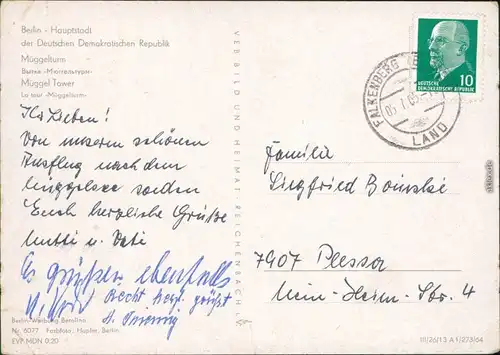 Berlin - Hauptstadt
der Deutschen Demokratischen Republik
Müggelturm
Вытка «Мюггельтурм»
Müggel Tower
La tour «Müggelturm»
Ihr Lieben!
Von unserem schönen
Ausflug nach dem
Müggelsee senden
Euch herzliche Grüße
Mutti u. Vati
Es grüßen ebenfalls
Recht herzl. grüßt
Berlin-Werbung Berolina
Nr. 6077 Farbfoto, Hupfer, Berlin
EVP MDN 0.20
VEB BILD UND HEIMAT REICHENBACH
FALKENBERG
LAND
10
DEUTSCHE
DEMOKRATISCHE REPUBLIK
Familie
Siegfried
7907 Plessa
Heim-Str. 4
III/26/13 A 1/273/64